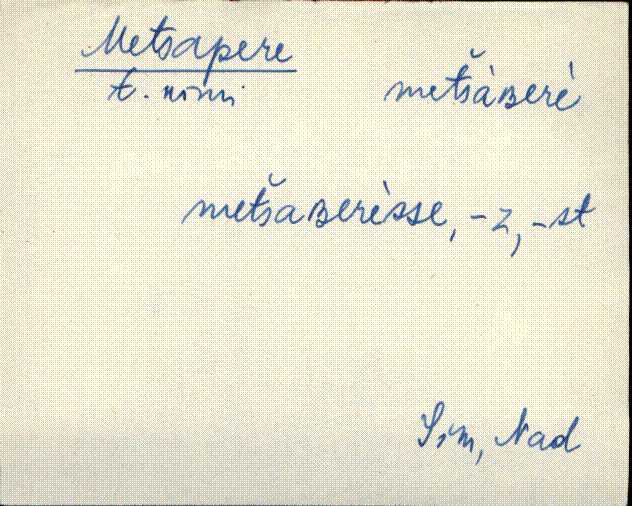 Metsapere
t. nimi
metšàʙerè
metšaʙerèsse, -z, -st
Sim, Nad